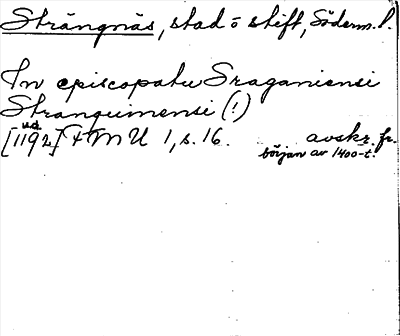 Strängnäs, stad o stift, Söderm. l.
In episcopatu Sraganiensi
Stranguimensi (!)
[u.å. 1192] FMU 1, s. 16. avskr. fr.
början av 1400-t.